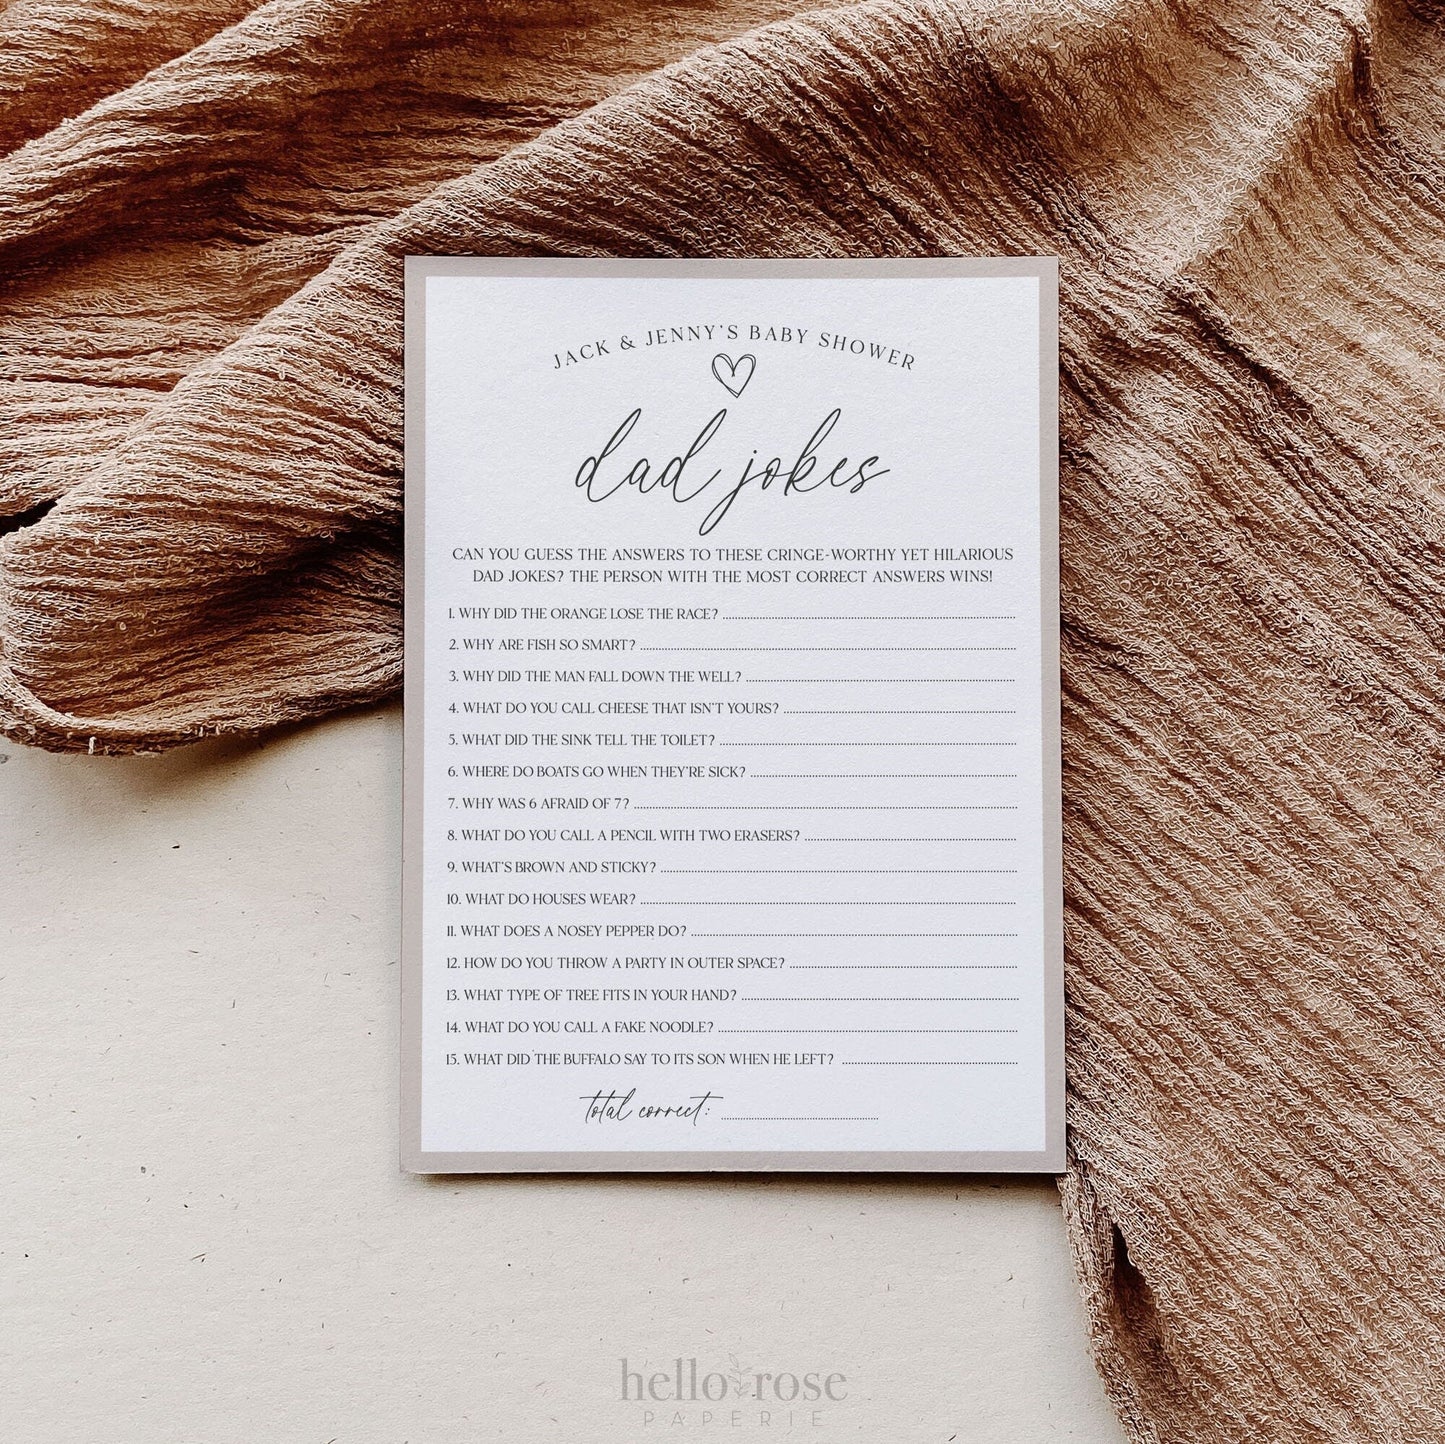 JACK & JENNY'S BABY SHOWER
dad jokes
CAN YOU GUESS THE ANSWERS TO THESE CRINGE-WORTHY YET HILARIOUS
DAD JOKES? THE PERSON WITH THE MOST CORRECT ANSWERS WINS!
1. WHY DID THE ORANGE LOSE THE RACE?
2. WHY ARE FISH SO SMART?
3. WHY DID THE MAN FALL DOWN THE WELL?
4. WHAT DO YOU CALL CHEESE THAT ISN'T YOURS?
5. WHAT DID THE SINK TELL THE TOILET?
6. WHERE DO BOATS GO WHEN THEY'RE SICK?
7. WHY WAS 6 AFRAID OF 7?
8. WHAT DO YOU CALL A PENCIL WITH TWO ERASERS?
9. WHAT'S BROWN AND STICKY?
10. WHAT DO HOUSES WEAR?
11. WHAT DOES A NOSEY PEPPER DO?
12. HOW DO YOU THROW A PARTY IN OUTER SPACE?
13. WHAT TYPE OF TREE FITS IN YOUR HAND?
14. WHAT DO YOU CALL A FAKE NOODLE?
15. WHAT DID THE BUFFALO SAY TO ITS SON WHEN HE LEFT?
total correct:
hello rose
PAPERIE